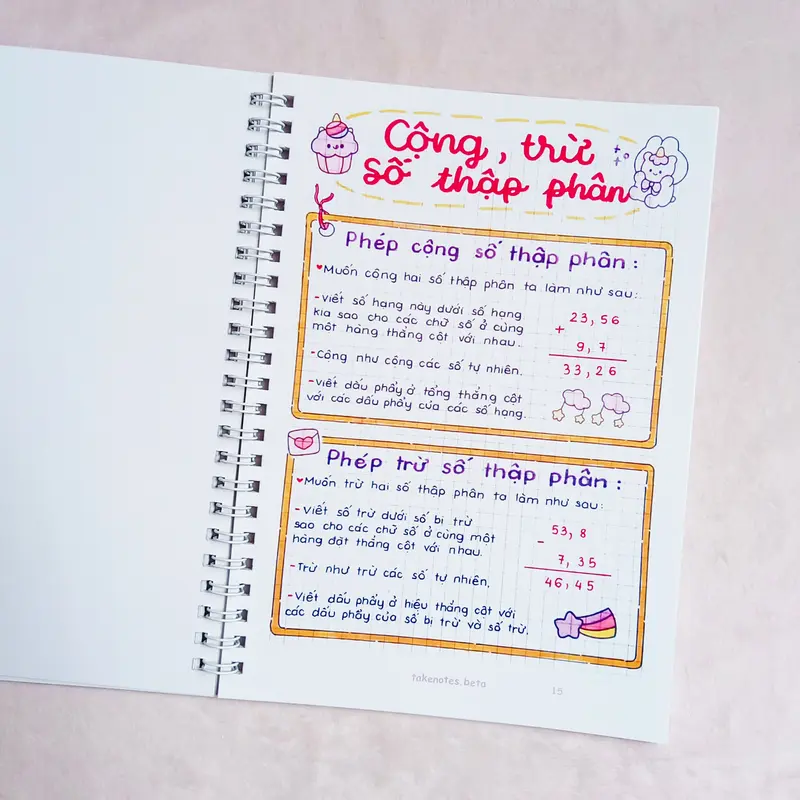 Cộng, trừ
số thập phân
Phép cộng số thập phân:
Muốn cộng hai số thập phân ta làm như sau:
- Viết số hạng này dưới số hạng
kia sao cho các chữ số ở cùng
một hàng thẳng cột với nhau.
- Cộng như cộng các số tự nhiên.
- Viết dấu phẩy ở tổng thẳng cột
với các dấu phẩy của các số hạng.
23,56
+
9,7
33,26
Phép trừ số thập phân:
Muốn trừ hai số thập phân ta làm như sau:
- Viết số trừ dưới số bị trừ
sao cho các chữ số ở cùng một
hàng đặt thẳng cột với nhau.
- Trừ như trừ các số tự nhiên.
- Viết dấu phẩy ở hiệu thẳng cột với
các dấu phẩy của số bị trừ và số trừ.
53,8
-
7,35
46,45
takenotes.beta
15